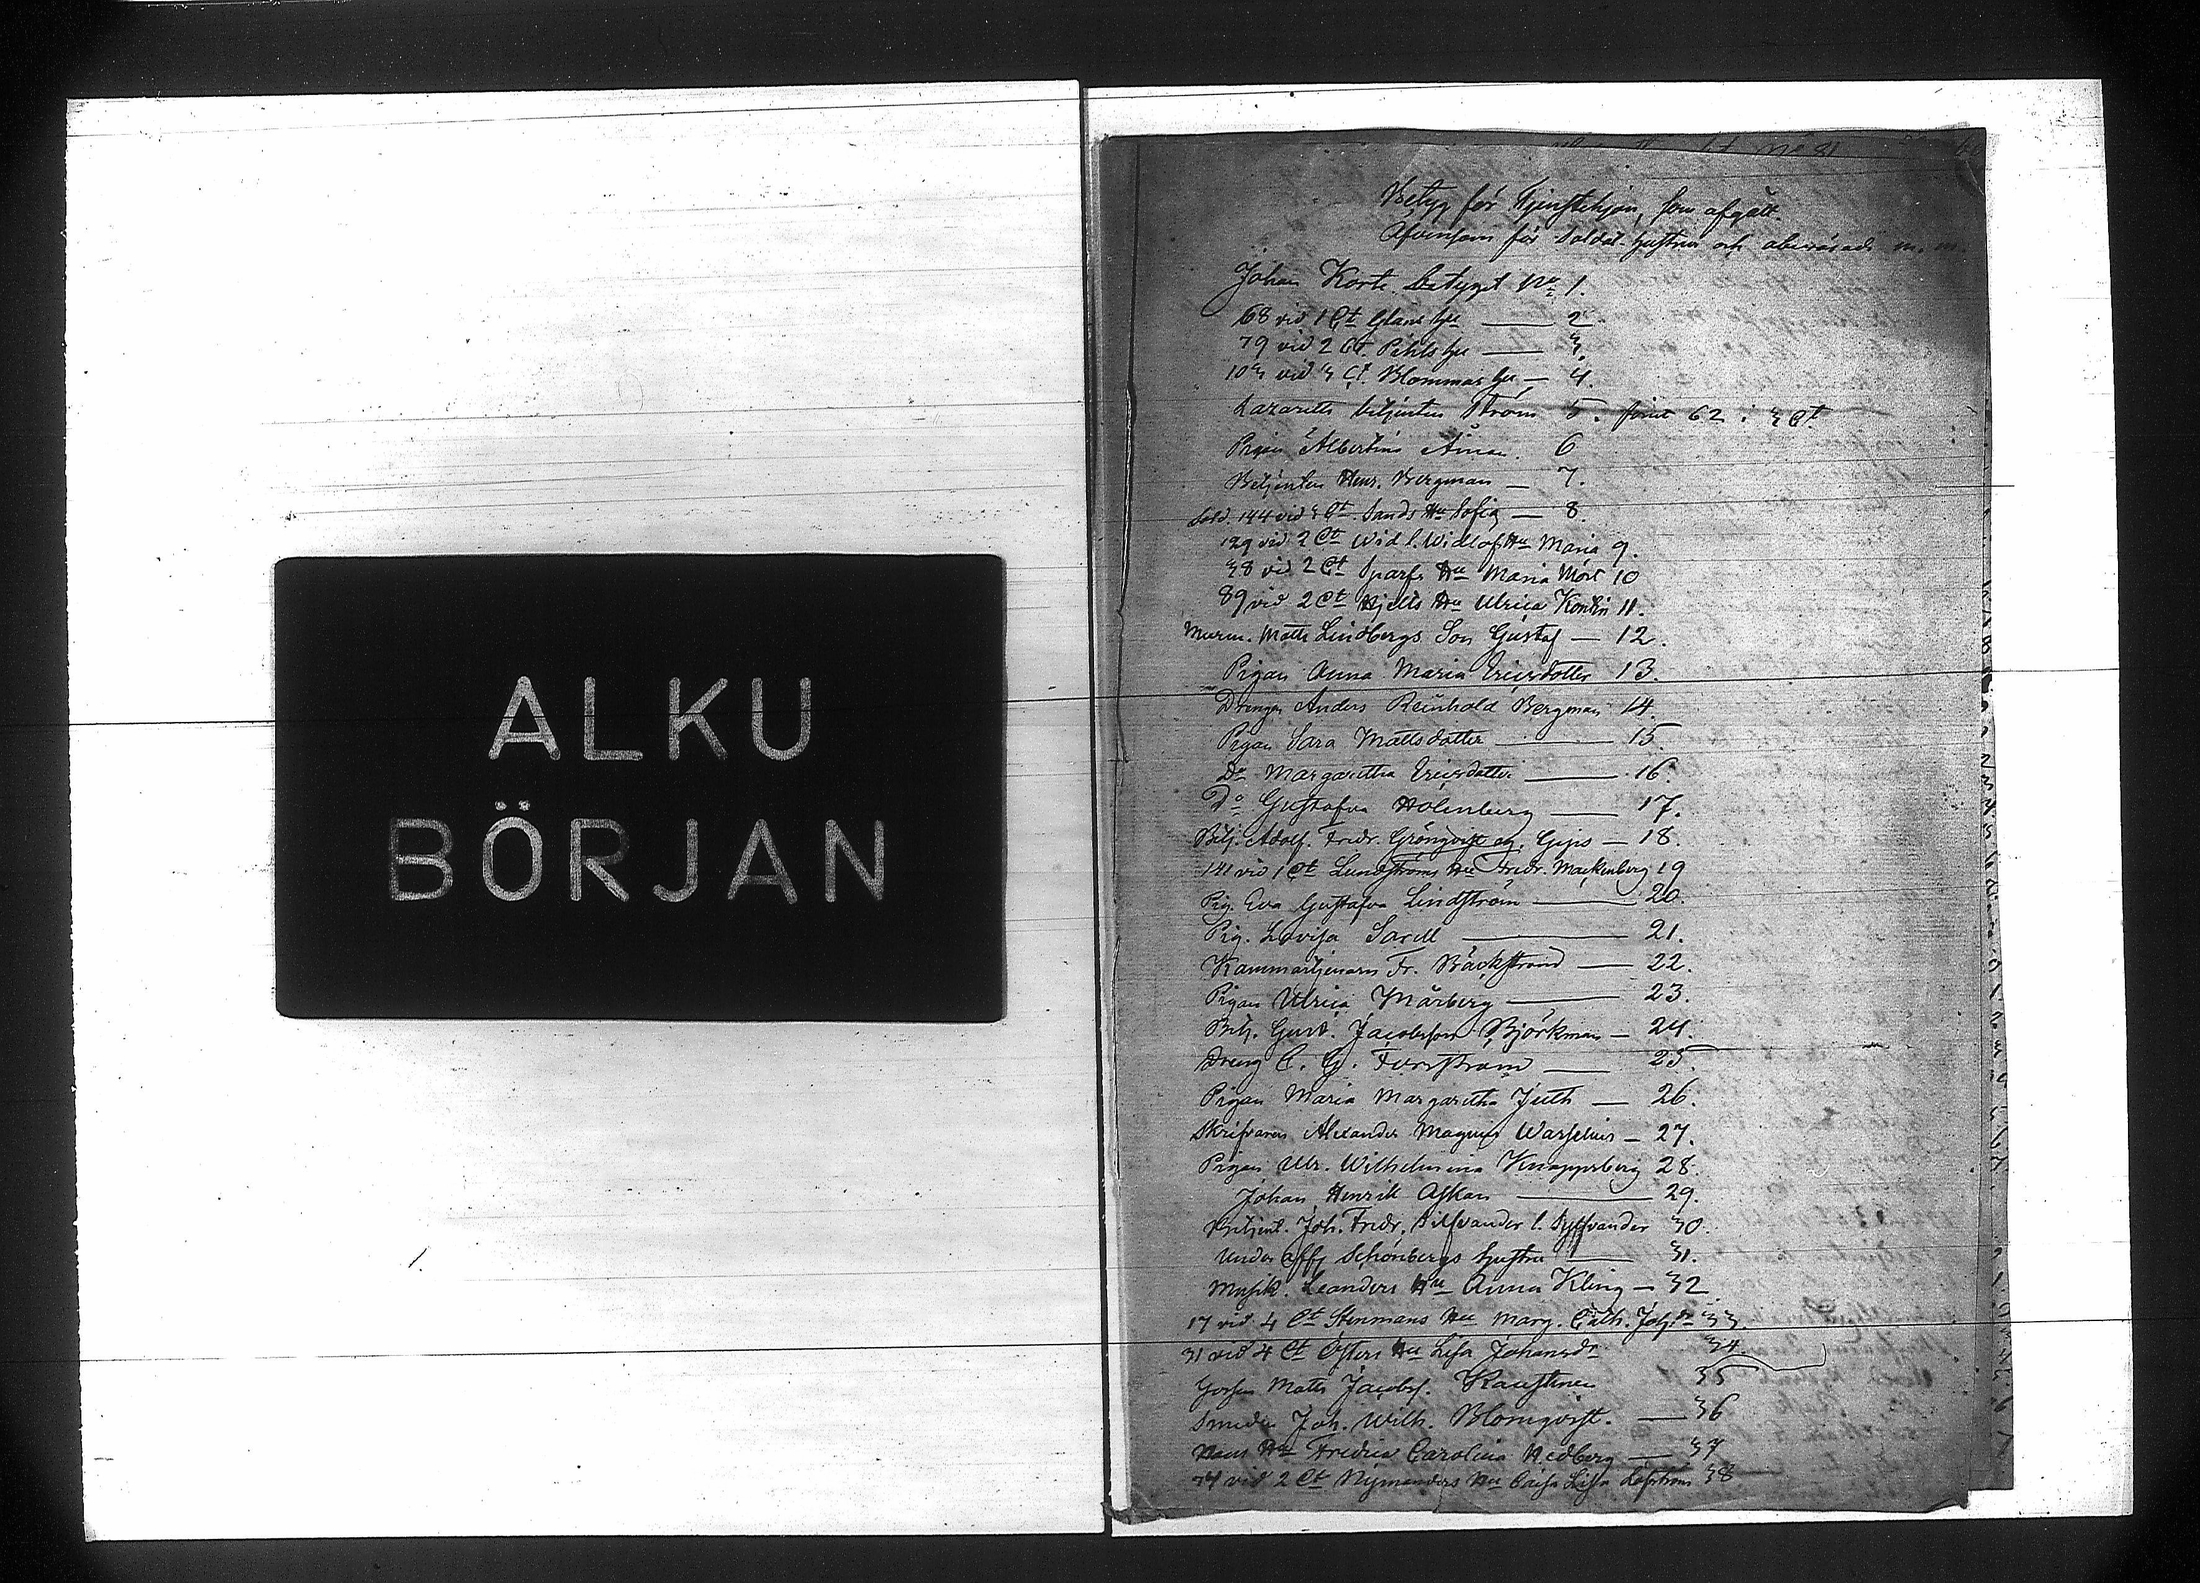 ALKU
BÖRJAN
No 81
Betyg för Tjenstehjon, som afgått
Äfvensom för Soldat-hustrur och m. m.
Johan Korte betyget No 1.
68 vid 1 Ct Glans hu — 2
79 vid 2 Ct Pihls hu — 3.
103 vid 3 Ct. Blommas hu — 4.
Lazaretts betjenten Ström 5. förut 62 i 3 Ct
Pigan Albertina 6
Betjenten Henr. Bergman — 7.
Sold. 144 vid 3 Ct. Sands Hu Sofia — 8.
129 vid 2 Ct Wid l. Widlöfs Hu Maria 9.
38 vid 2 Ct Sparfs Hu Maria Mört 10
89 vid 2 Ct Hjelts Hu Ulrica 11.
Murm. Matts Lindbergs Son Gustaf — 12.
Pigan Anna Maria Ericsdotter 13.
Drengen Anders Reinhold Bergman 14.
Pigan Sara Mattsdotter — 15.
Do Margaretha Ericsdotter — 16.
Do Gustafva Holmberg — 17.
Betj. Adolf Fredr. Gröngvist — 18.
141 vid 1 Ct Lundströms Hu Fredr. Mackenberg 19
Pig. Eva Gustafva Lindström — 20.
Pig. Lovisa Sarell — 21.
Kammartjenaren Fr. Bäckstrand — 22.
Pigan Ulrica Mårberg — 23.
Betj. Gust. Jacobsson Björkman — 24.
Dreng C. G. Forsström — 25
Pigan Maria Margaretha Juth — 26.
Skrifvaren Alexander Magnus Warselius — 27.
Pigan Ulr. Wilhelmina Knappsberg 28.
Johan Henrik Askan — 29.
Betjent. Joh. Fredr. Silfvander l. Sylfvander 30.
Under Off. Schönbergs hustru — 31.
Musik. Leanders Hu Anna Kling — 32
17 vid 4 Ct Stenmans Hu Marg. Cath. Johsdr 33
31 vid 4 Ct Östers Hu Lisa Johansdr 34.
Matts Jacobs. Kaustinen 35
Smeden Joh. Wilh. Blomqvist. — 36
Hans Hu Fredrica Carolina Hedberg — 37
74 vid 2 Ct Nymanders Hu Caisa Lisa Löfström 38